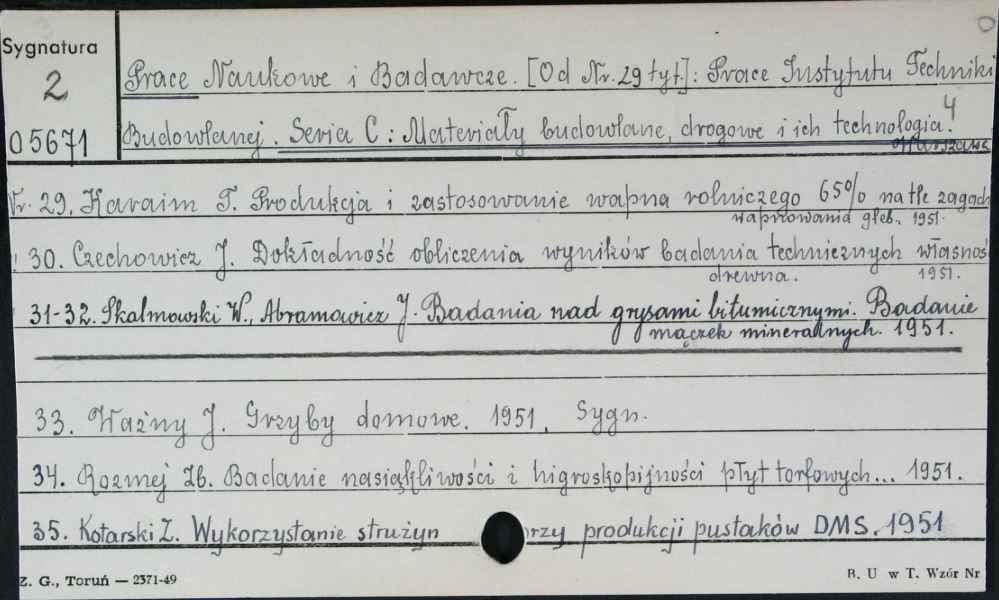 Sygnatura
2
05671
4
Prace Naukowe i Badawcze. [Od Nr. 29 tyt]: Prace Instytutu Techniki
Budowlanej. Seria C: Materiały budowlane, drogowe i ich technologia.
Warszawa
Nr. 29. Karaim T. Produkcja i zastosowanie wapna rolniczego 65% na tle zagad
wapnowania gleb. 1951.
30. Czechowicz J. Dokładność obliczenia wyników badania technicznych własnoś
drewna. 1951.
31-32. Skalmowski W., Abramowicz J. Badania nad grysami bitumicznymi. Badanie
mączek mineralnych. 1951.
33. Ważny J. Grzyby domowe. 1951. Sygn.
34. Rozmej Zb. Badanie nasiąkliwości i higroskopijności płyt torfowych... 1951.
35. Kotarski Z. Wykorzystanie strużyn przy produkcji pustaków DMS. 1951
Z. G., Toruń — 2371-49
B. U w T. Wzór Nr